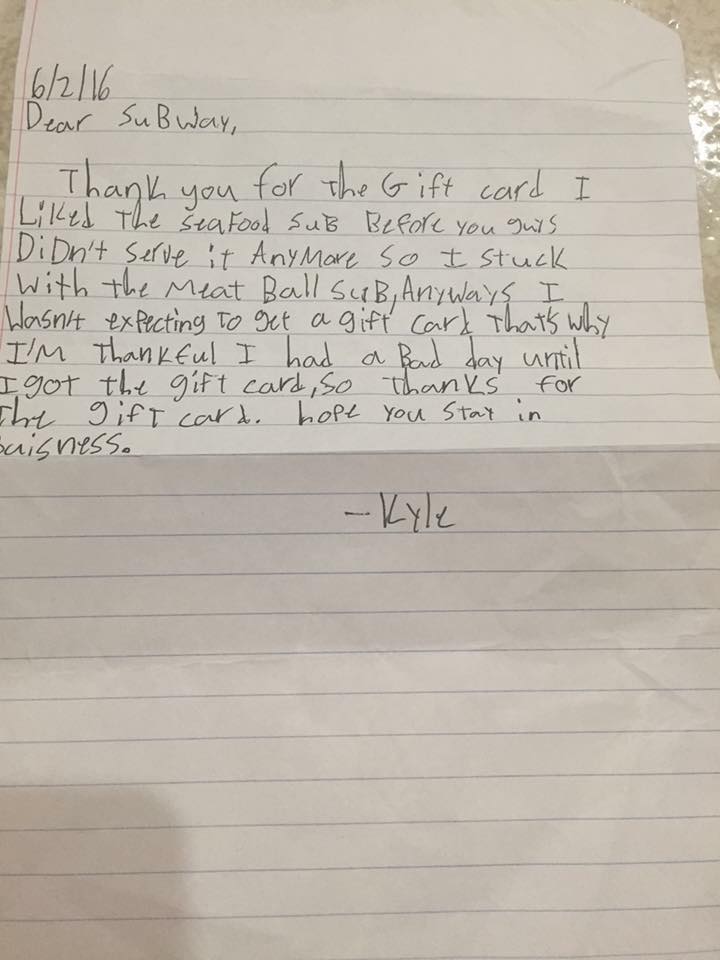 6/2/16
Dear SuBway,
Thank you for the Gift card I
Liked The seafood suB Before you guys
DiDn't serve it AnyMore so I stuck
With the Meat Ball SuB, Anyways I
Wasn't expecting To get a gift card that's why
I'M thankful I had a Bad day until
I got the gift card, so thanks for
The gift card. hope you stay in
buisness.
-Kyle